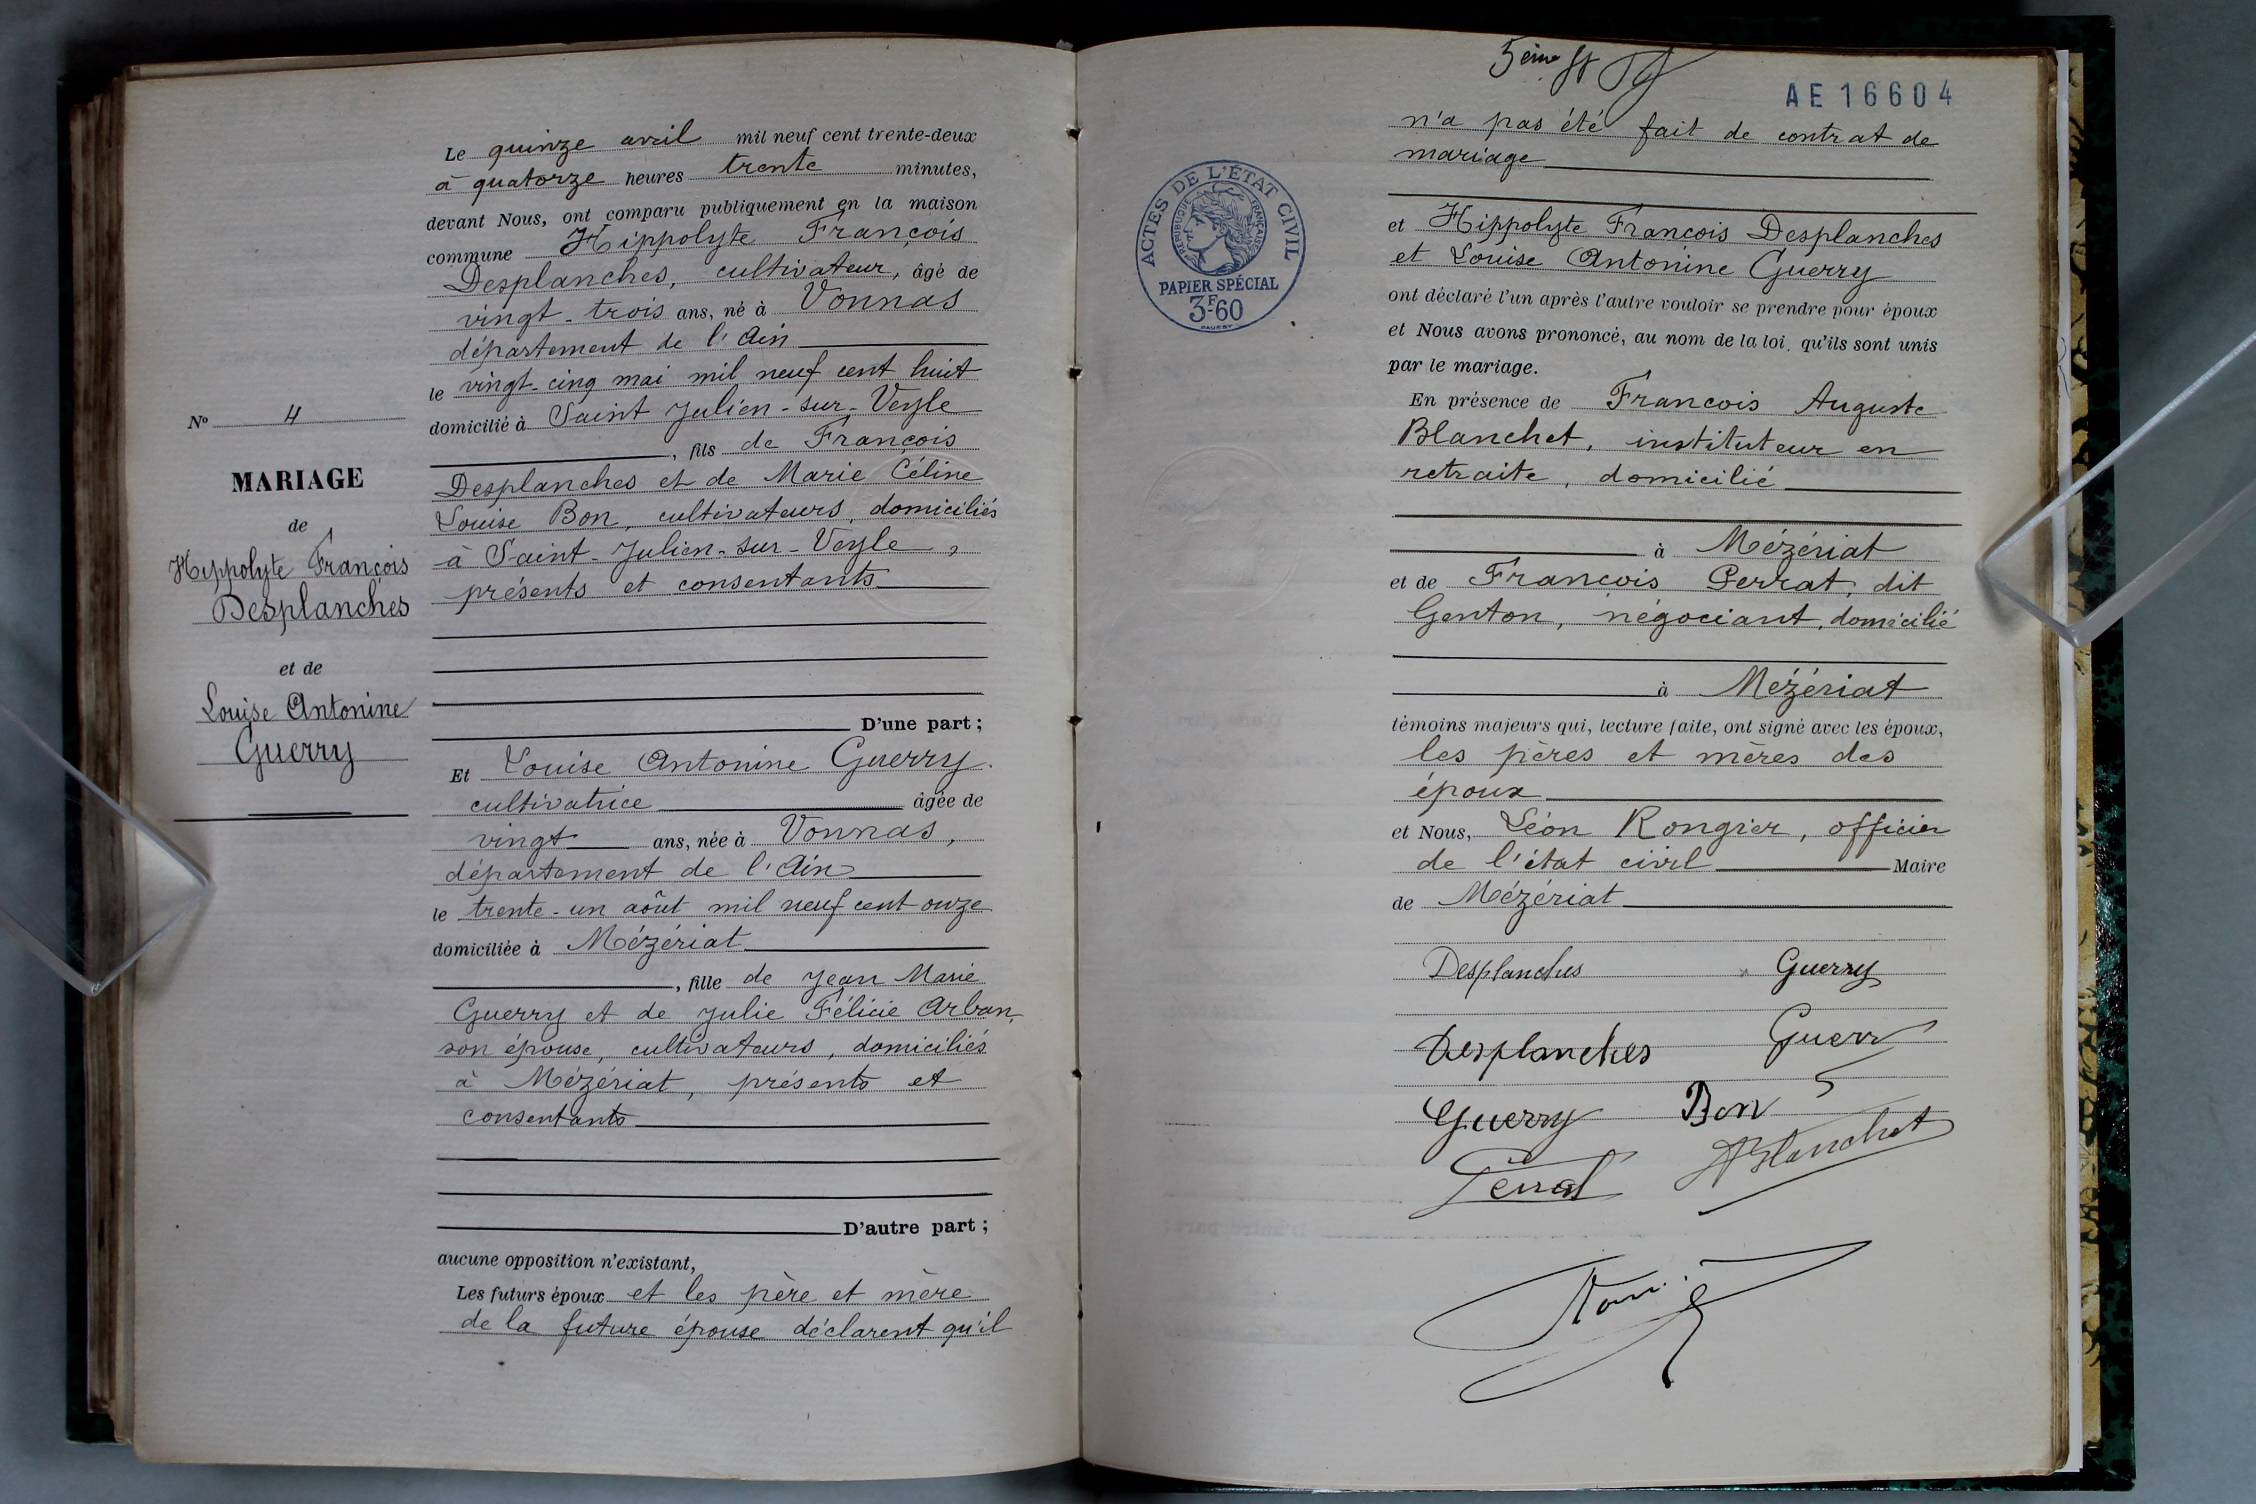 Le quinze avril mil neuf cent trente-deux
à quatorze heures trente minutes,
devant Nous, ont comparu publiquement en la maison
commune Hippolyte François
Desplanches, cultivateur, âgé de
vingt-trois ans, né à Vonnas
département de l'Ain
le vingt-cinq mai mil neuf cent huit
domicilié à Saint Julien-sur-Veyle
, fils de François
Desplanches et de Marie Céline
Louise Bon, cultivateurs, domiciliés
à Saint-Julien-sur-Veyle,
présents et consentants
D'une part ;
Et Louise Antonine Guerry.
cultivatrice âgée de
vingt ans, née à Vonnas,
département de l'Ain
le trente-un août mil neuf cent onze
domiciliée à Mézériat
, fille de Jean Marie
Guerry et de Julie Félicie Arban,
son épouse, cultivateurs, domiciliés
à Mézériat, présents et
consentants
D'autre part ;
aucune opposition n'existant,
Les futurs époux et les père et mère
de la future épouse déclarent qu'il
N° 4
MARIAGE
de
Hippolyte François
Desplanches
et de
Louise Antonine
Guerry
5ème
AE 16604
ACTES DE L'ÉTAT CIVIL
RÉPUBLIQUE FRANÇAISE
PAPIER SPÉCIAL
3F60
n'a pas été fait de contrat de
mariage
et Hippolyte François Desplanches
et Louise Antonine Guerry
ont déclaré l'un après l'autre vouloir se prendre pour époux
et Nous avons prononcé, au nom de la loi, qu'ils sont unis
par le mariage.
En présence de François Auguste
Blanchet, instituteur en
retraite, domicilié
à Mézériat
et de François Perrat, dit
Genton, négociant, domicilié
à Mézériat
témoins majeurs qui, lecture faite, ont signé avec les époux,
les pères et mères des
époux
et Nous, Léon Rongier, officier
de l'état civil Maire
de Mézériat
Desplanches Guerry
Desplanches Guerr
Guerry Bon
Perrat Blanchet